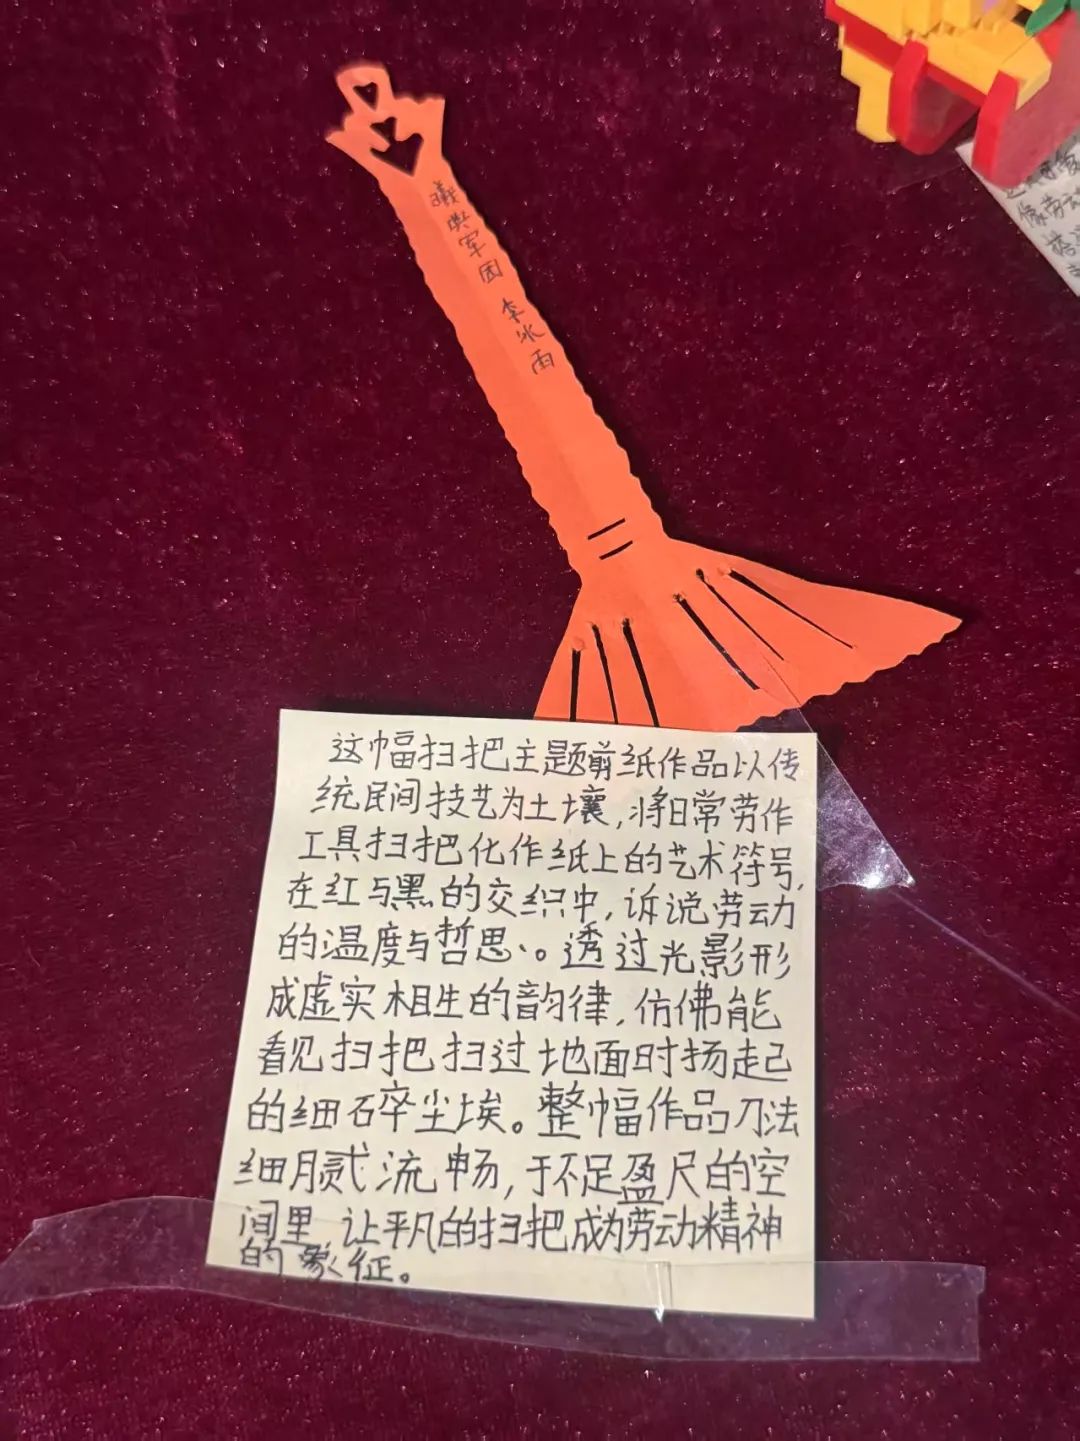 曦
军团
李冰雨
像劳动
这幅扫把主题剪纸作品以传
统民间技艺为土壤,将日常劳作
工具扫把化作纸上的艺术符号,
在红与黑的交织中,诉说劳动
的温度与哲思、。透过光影形
成虚实相生的韵律,仿佛能
看见扫把扫过地面时扬起
的细碎尘埃。整幅作品刀法
细腻流畅,于不足盈尺的空
间里,让平凡的扫把成为劳动精神
的象征。